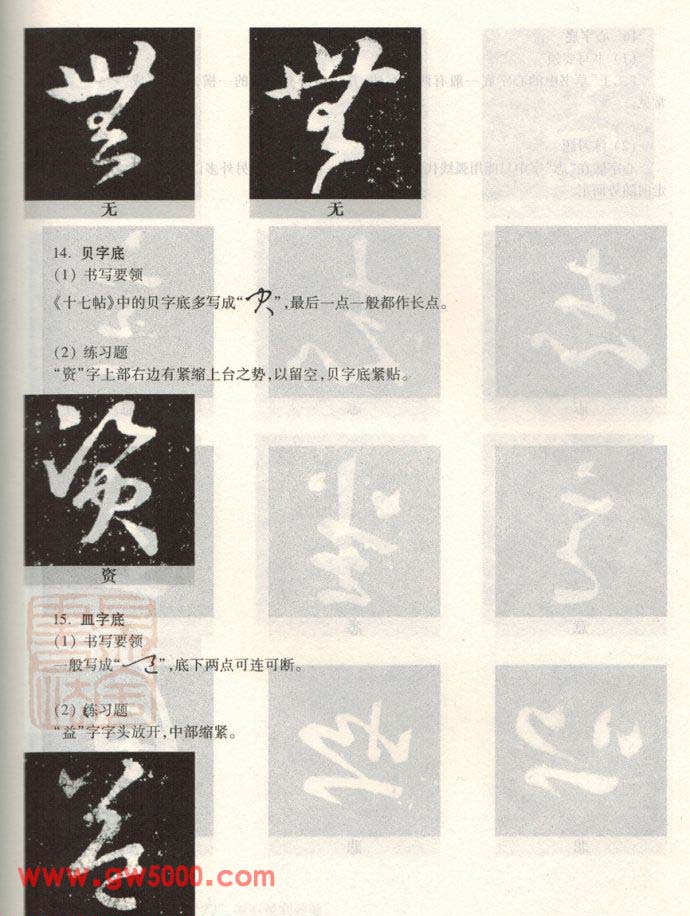 无 无
14. 贝字底
(1) 书写要领
《十七帖》中的贝字底多写成“ ”,最后一点一般都作长点。
(2) 练习题
“资”字上部右边有紧缩上台之势,以留空,贝字底紧贴。
资
15. 皿字底
(1) 书写要领
一般写成“ ”,底下两点可连可断。
(2) 练习题
“益”字字头放开,中部缩紧。
www.gw5000.com